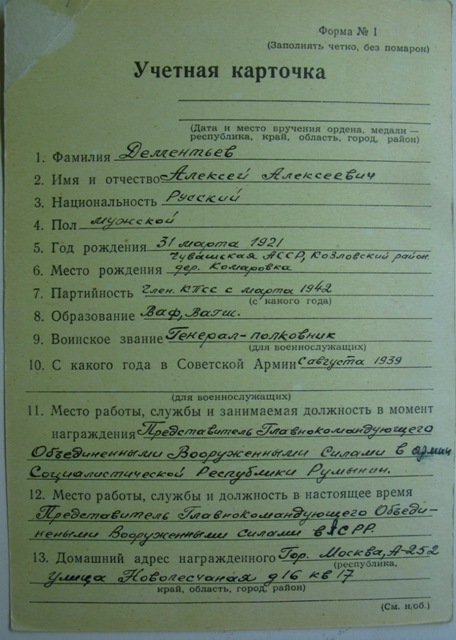 Форма № 1
(Заполнять четко, без помарок)
Учетная карточка
(Дата и место вручения ордена, медали —
республика, край, область, город, район)
1. Фамилия Дементьев
2. Имя и отчество Алексей Алексеевич
3. Национальность Русский
4. Пол мужской
5. Год рождения 31 марта 1921
Чувашская АССР, Козловский район.
6. Место рождения дер. Комаровка
7. Партийность Член КПСС с марта 1942
(с какого года)
8. Образование Ваф, Вагш.
9. Воинское звание Генерал-полковник
(для военнослужащих)
10. С какого года в Советской Армии С августа 1939
(для военнослужащих)
11. Место работы, службы и занимаемая должность в момент
награждения Представитель Главнокомандующего
Объединенными Вооруженными Силами в армии
Социалистической Республики Румынии.
12. Место работы, службы и должность в настоящее время
Представитель Главнокомандующего Объеди-
неными Вооруженными силами в АСРР.
13. Домашний адрес награжденного Гор. Москва, А-252
(республика,
улица Новопесчаная д 16 кв 17
край, область, город, район)
(См. н/об.)